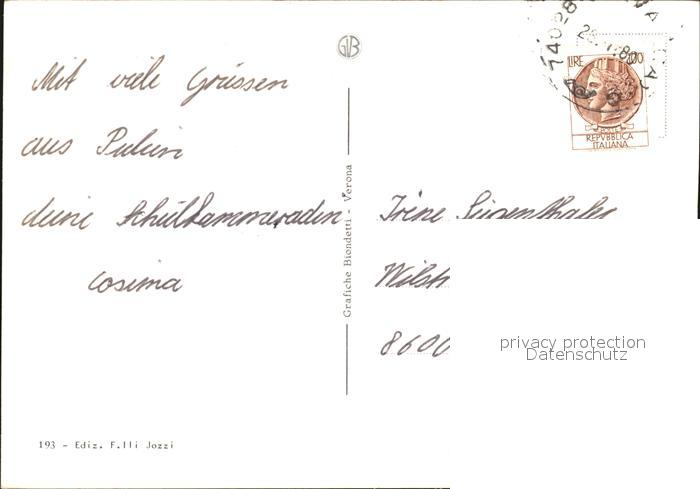 GVB
Mit viele Grüssen
aus Pulien
deine Schulkammeraden
Cosima
Grafiche Biondetti - Verona
Irene
8600
LIRE 100
REPVBBLICA
ITALIANA
privacy protection
Datenschutz
193 - Ediz. F.lli Jozzi